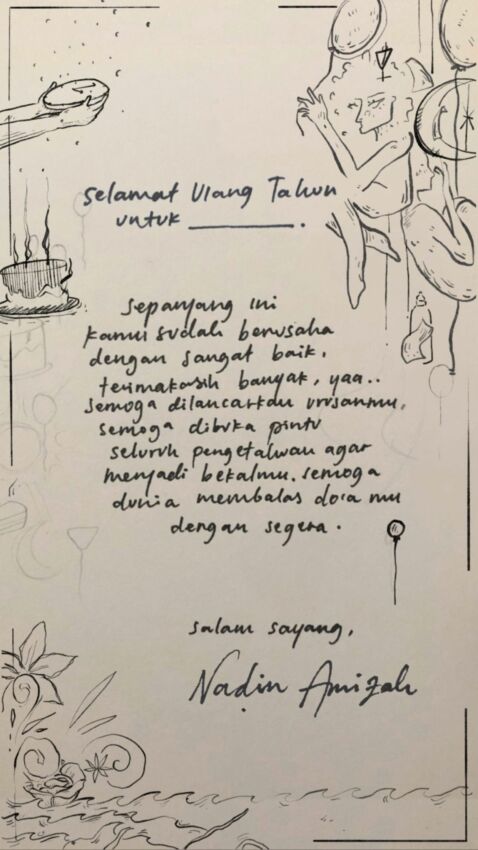 Selamat Ulang Tahun
untuk __________.
Sepanjang ini
kamu sudah berusaha
dengan sangat baik,
terimakasih banyak, yaa..
semoga dilancarkan urusanmu,
semoga dibuka pintu
seluruh pengetahuan agar
menjadi bekalmu. semoga
dunia membalas do'a mu
dengan segera.
salam sayang,
Nadin Amizah